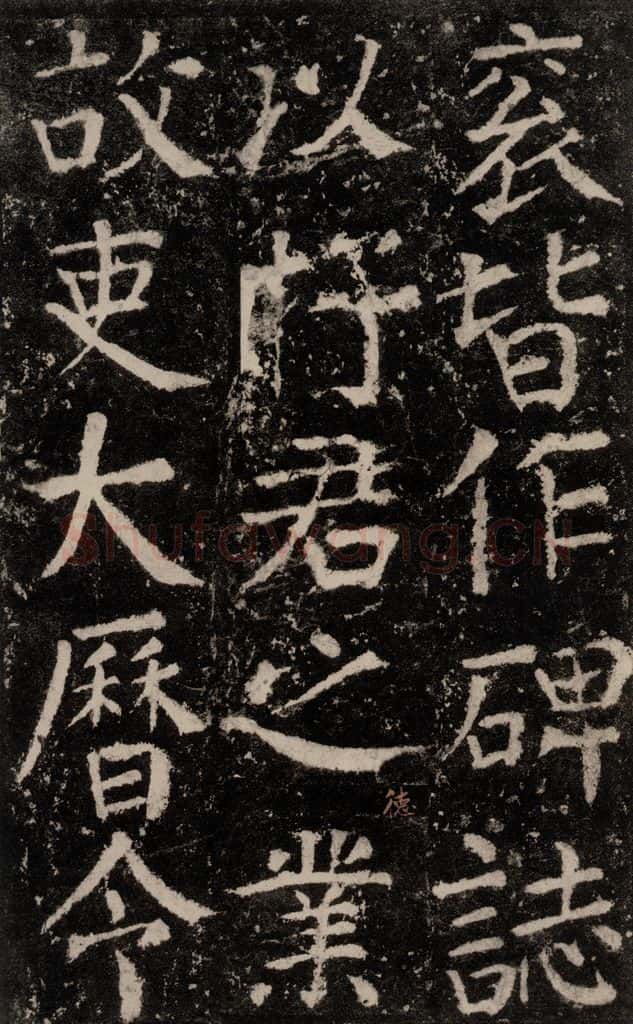 衮皆作碑誌
以抒君之德業
故吏大曆令
Shufawang.CN